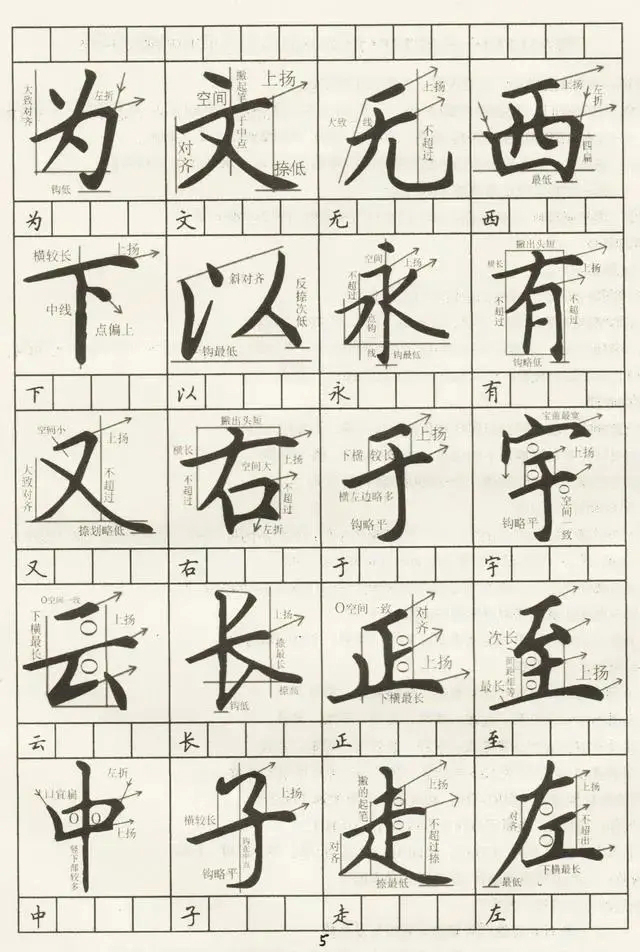 大致对齐
左折
为
钩低
空间
撇起笔于中点
上扬
文
对齐
捺低
上扬
大致一线
无
不超过
上扬
左折
西
四扁
最低
为
文
无
西
横较长
上扬
下
中线
点偏上
斜对齐
以
反捺次低
钩最低
空间
上扬
不超过
永
点钩一线
钩最低
撇出头短
横长
上扬
有
不超过
不超过
钩略低
下
以
永
有
空间小
上扬
又
大致对齐
不超过
捺划略低
撇出头短
横长
上扬
空间大
右
不超过
不超过
左折
上扬
下横较长
于
横左边略多
钩略平
宝盖最宽
上扬
宇
空间一致
钩略平
又
右
于
宇
O空间一致
下横最长
上扬
云
上扬
长
捺最长
捺高
钩低
O空间一致
对齐
正
上扬
下横最长
次长
至
间距相等
上扬
最长
云
长
正
至
左折
口宜扁
中
上扬
竖下部较多
上扬
横较长
子
钩在中点
钩略平
撇的起笔
上扬
走
对齐
不超过捺
捺最低
上扬
对齐
左
不超出
下横最长
最低
中
子
走
左
5